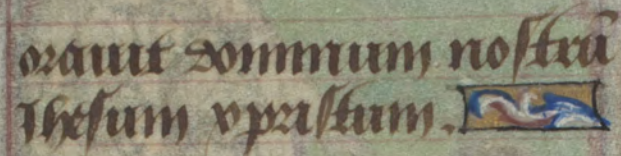 orauit dominum nostrū
Ihesum xpristum.